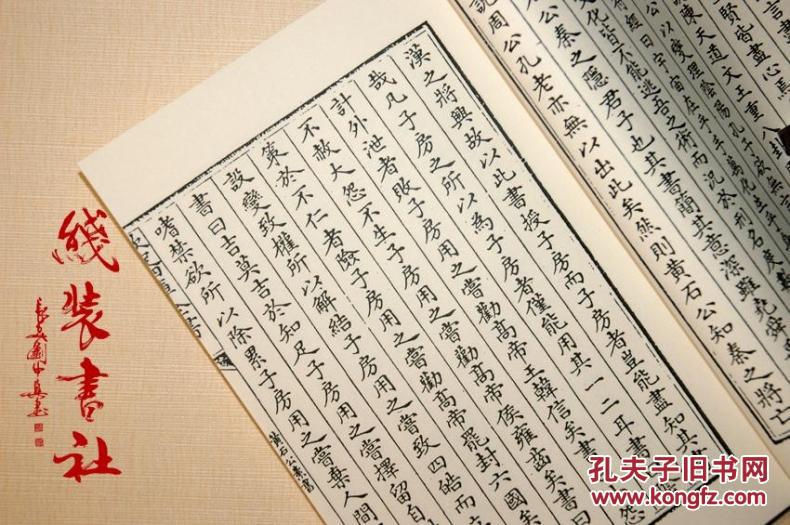 賢皆盡心焉
陳天道文王重八卦
公以燮理陰陽孔子欲無言
經曰宇宙在乎手萬化生乎身
化皆不能逃吾之術而況於刑名度數
公秦之隱君子也其書簡其意深雖堯舜
說周公孔老亦無以出此矣然則黃石公知秦之將亡
漢之將興故以此書授子房而子房者豈能盡知其書
哉凡子房之所以為子房者僅能用其一二耳書曰陰
計外泄者敗子房用之嘗勸高帝王韓信矣書曰小怨
不赦大怨不生子房用之嘗勸高帝侯雍齒矣書曰
策於不仁者險子房用之嘗勸高帝罷封六國矣
設變致權所以解結子房用之嘗致四皓而立
書曰吉莫吉於知足子房用之嘗擇留自
嗜禁欲所以除累子房用之嘗棄人間
黃石公素書
綫装書社
孔夫子旧书网
www.kongfz.com